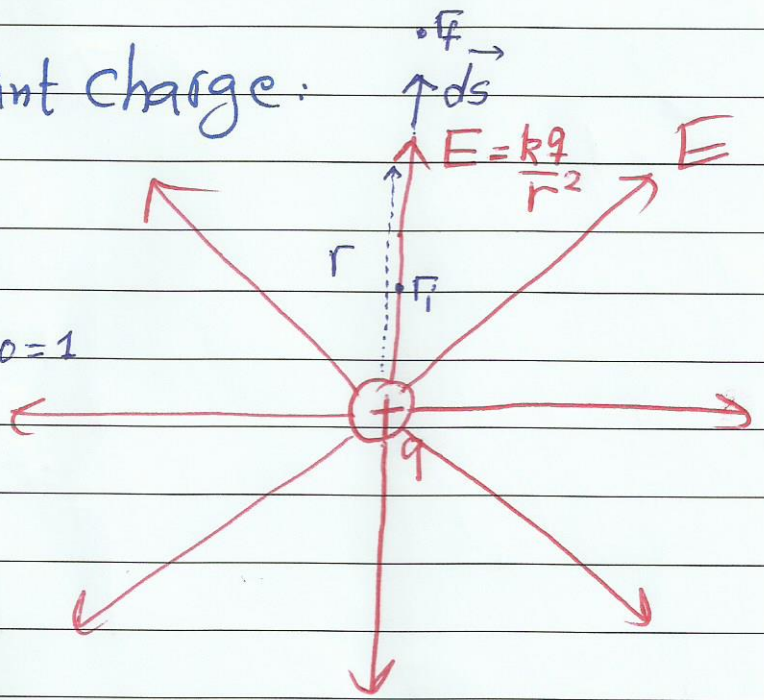 r_f
int charge:
ds
E = kq/r²
E
r
r_i
0 = 1
+
q